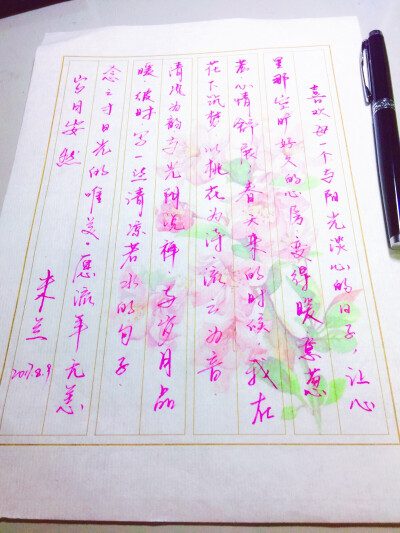 喜欢每一个与阳光谈心的日子，让心
里那空旷好久的心房.变得暖意葱
心情舒展.春天来的时候.我在
花下筑梦.以桃花为诗.流云为音.
清风为韵.与光阴说禅.与岁月品
暖.彼时.写一些清凉若水的句子.
念三寸日光的唯美.愿流年无恙
岁月安然
来兰
2017.8.9